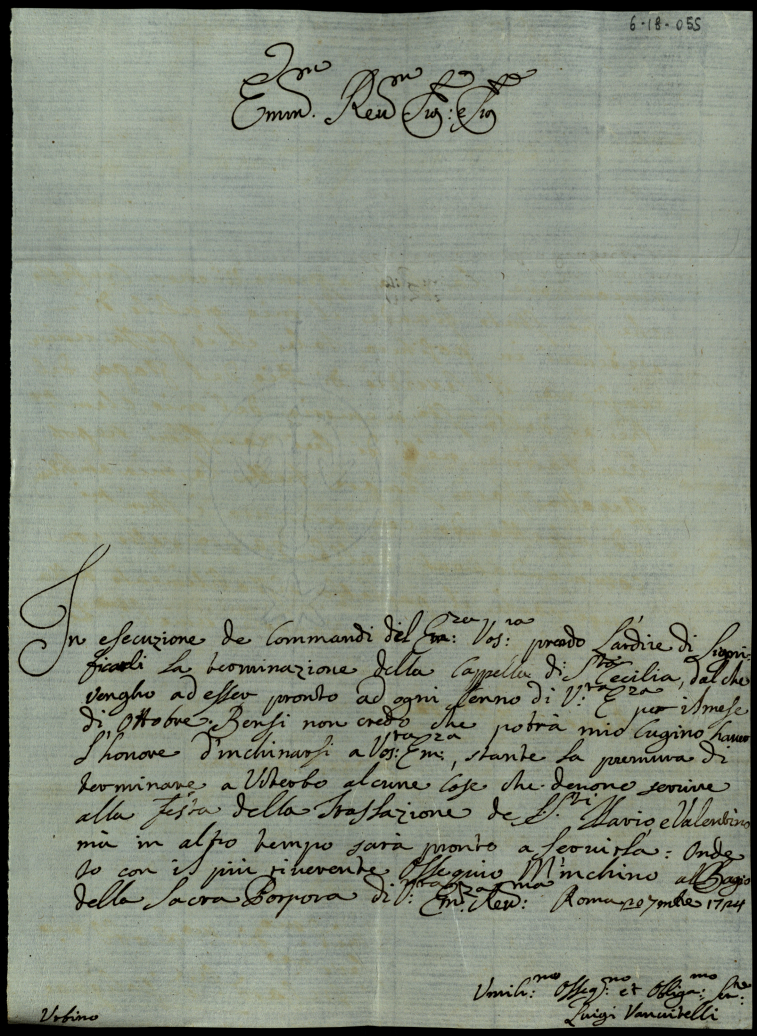 6-18-055
Emin.mo Rev.mo Sig.r e Sig.re
In esecuzione de Commandi del Em.za Vos.ra prendo l'ardire di Signi-
ficarli la terminazione della Cappella di S.ta Cecilia, dal che
vengho ad esser pronto ad ogni Cenno di V.ra E.za per il mese
di Ottobre. Bensi non credo che potrà mio Cugino haver
l'honore d'inchinarsi a Vos.ra Em.za, stante la premura di
terminare a Viterbo alcune Cose che devono servire
alla festa della Traslazione de S.S.ti Ilario, e Valentino
mà in altro tempo sarà pronto a servirla: Onde
Io con il più riverente Ossequio M'inchino al Bagio
della Sacra Porpora di V.ra Em.za Rev.ma Roma 20 7mbre 1724
Umili.mo Osseq.mo et Obliga.mo Ser.re
Luigi Vanvitelli
Urbino